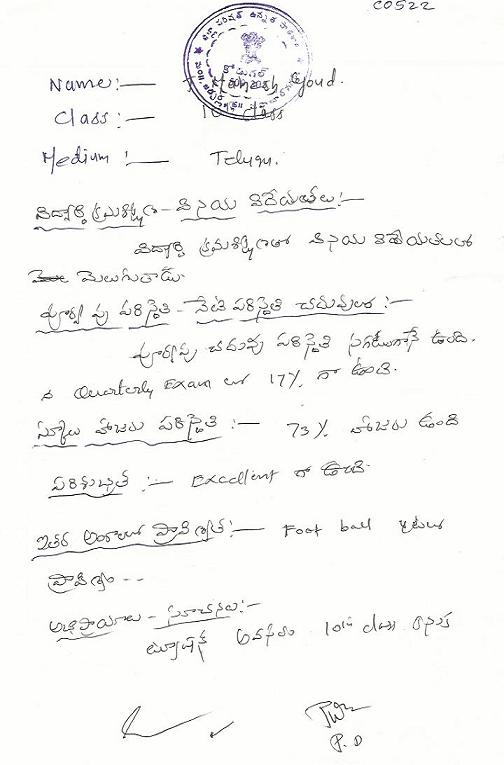 C0522
Name:— T. Mahesh Goud.
Class:— 10th class
Medium:— Telugu.
విద్యార్థి క్రమశిక్షణ - వినయ విధేయతలు:-
విద్యార్థి క్రమశిక్షణతో వినయ విధేయతలతో
మెలుగుతాడు.
పూర్వపు పరిస్థితి - నేటి పరిస్థితి చదువులో:-
పూర్వపు చదువు పరిస్థితి సగటుగానే ఉంది.
Quarterly Exam లో 17% గా ఉంది.
స్కూలు హాజరు పరిస్థితి:- 73% హాజరు ఉంది
పరిశుభ్రత:- Excellent గా ఉంది.
ఇతర అంశాలలో ప్రావీణ్యత:- Foot ball ఆటలో
ప్రావీణ్యం --
అభిప్రాయాలు - సూచనలు:-
ట్యూషన్ అవసరం 10th class కనుక
P.D